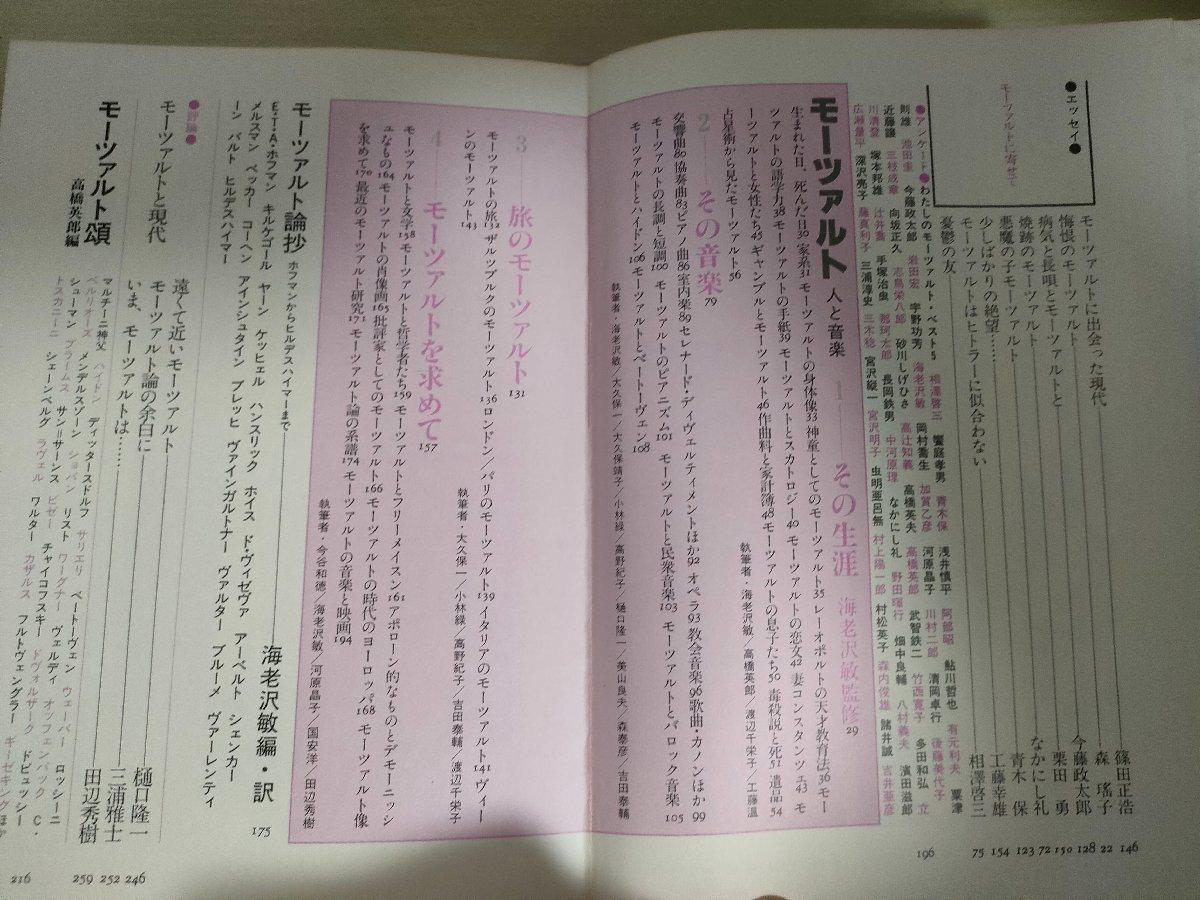 ●エッセイ●
モーツァルトに寄せて
モーツァルトに出会った現代
篠田正浩 146
悔恨のモーツァルト
森 瑤子 22
病気と長唄とモーツァルトと
今藤政太郎 128
焼跡のモーツァルト
栗田 勇 150
悪魔の子モーツァルト
なかにし礼 72
少しばかりの絶望……
青木 保 123
モーツァルトはヒトラーに似合わない
工藤幸雄 154
憂鬱の友
相澤啓三 75
●アンケート●わたしのモーツァルト・ベスト5
相澤啓三 饗庭孝男 青木保 浅井慎平 阿部昭 鮎川哲也 有元利夫 粟津
則雄 池田圭 今藤政太郎 岩田宏 宇野功芳 海老沢敏 岡村喬生 加賀乙彦 河原晶子 川村二郎 清岡卓行 後藤美代子
近藤譲 三枝成章 向坂正久 志鳥栄八郎 砂川しげひさ 高辻知義 高橋英夫 高橋英郎 武智鉄二 竹西寛子 多田和弘 立
川清登 塚本邦雄 辻井喬 手塚治虫 那珂太郎 長岡鉄男 中河原理 なかにし礼 野田暉行 畑中良輔 八村義夫 濱田滋郎
広瀬量平 深沢亮子 藤真利子 三浦淳史 三木稔 宮沢縦一 宮沢明子 虫明亜呂無 村上陽一郎 村松英子 森内俊雄 諸井誠 吉井亜彦
196
モーツァルト 人と音楽 1―その生涯 海老沢敏監修 29
生まれた日、死んだ日30 家系31 モーツァルトの身体像33 神童としてのモーツァルト35 レーオポルトの天才教育法36 モー
ツァルトの語学力38 モーツァルトの手紙39 モーツァルトとスカトロジー40 モーツァルトの恋文42 妻コンスタンツェ43 モ
ーツァルトと女性たち45 ギャンブルとモーツァルト46 作曲料と家計簿48 モーツァルトの息子たち50 毒殺説と死51 遺品54
占星術から見たモーツァルト56
執筆者・海老沢敏/高橋英郎/渡辺千栄子/工藤温
2―その音楽 79
交響曲80 協奏曲83 ピアノ曲86 室内楽89 セレナード・ディヴェルティメントほか92 オペラ93 教会音楽96 歌曲・カノンほか99
モーツァルトの長調と短調100 モーツァルトのピアニズム101 モーツァルトと民衆音楽103 モーツァルトとバロック音楽105
モーツァルトとハイドン106 モーツァルトとベートーヴェン108
執筆者・海老沢敏/大久保一/大久保靖子/小林緑/高野紀子/樋口隆一/美山良夫/森泰彦/吉田泰輔
3―旅のモーツァルト 131
モーツァルトの旅132 ザルツブルクのモーツァルト136 ロンドン/パリのモーツァルト139 イタリアのモーツァルト141 ヴィー
ンのモーツァルト143
執筆者・大久保一/小林緑/高野紀子/吉田泰輔/渡辺千栄子
4―モーツァルトを求めて 157
モーツァルトと文学158 モーツァルトと哲学者たち159 モーツァルトとフリーメイスン161 アポローン的なものとデモーニッシ
ュなもの164 モーツァルトの肖像画165 批評家としてのモーツァルト166 モーツァルトの時代のヨーロッパ168 モーツァルト像
を求めて170 最近のモーツァルト研究171 モーツァルト論の系譜174 モーツァルトの音楽と映画194
執筆者・今谷和徳/海老沢敏/河原晶子/国安洋/田辺秀樹
モーツァルト論抄 ホフマンからヒルデスハイマーまで
海老沢敏編・訳 175
E・T・A・ホフマン キルケゴール ヤーン ケッヒェル ハンスリック ホイス ド・ヴィゼヴァ アーベルト シェンカー
メルスマン ベッカー コーヘン アインシュタイン ブレッヒ ヴァインガルトナー ヴァルター ブルーメ ヴァーレンティ
ーン バルト ヒルデスハイマー
●評論●
モーツァルトと現代
遠くて近いモーツァルト
樋口隆一 246
モーツァルト論の余白に
三浦雅士 252
いま、モーツァルトは……
田辺秀樹 259
モーツァルト頌
高橋英郎編
マルチーニ神父 ハイドン ディッタースドルフ サリエリ ベートーヴェン ウェーバー ロッシーニ
ベルリオーズ メンデルスゾーン ショパン リスト ワーグナー ヴェルディ オッフェンバック C・
シューマン ブラームス サン=サーンス ビゼー チャイコフスキー ドヴォルザーク ドビュッシー
トスカニーニ シェーンベルグ ラヴェル ワルター カザルス フルトヴェングラー ギーゼキングほか
216